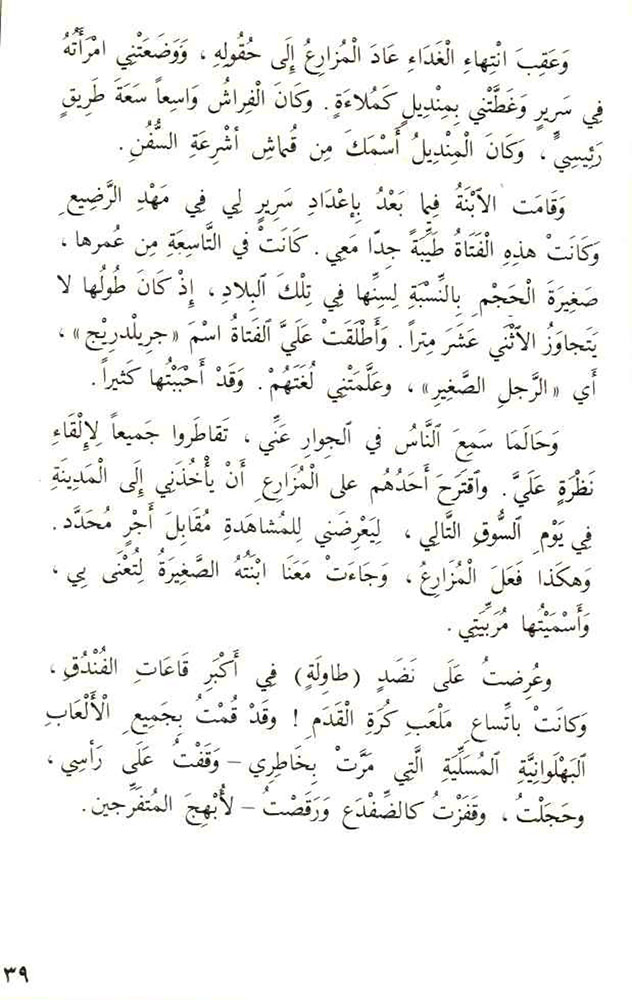 وَعَقِبَ انْتِهاءِ الْغَدَاءِ عَادَ الْمُزارِعُ إِلَى حُقُولِهِ ، وَوَضَعَتْنِي امْرَأَتُهُ
فِي سَرِيرٍ وَغَطَّتْنِي بِمِنْدِيلٍ كَمُلاءَةٍ . وَكَانَ الْفِراشُ وَاسِعاً سَعَةَ طَرِيقٍ
رَئِيسِيٍّ ، وَكَانَ الْمِنْدِيلُ أَسْمَكَ مِن قُماشِ أَشْرِعَةِ السُّفُنِ .
وَقَامَت الاَبْنَةُ فِيما بَعْدُ بِإِعْدَادِ سَرِيرٍ لِي فِي مَهْدِ الرَّضِيعِ .
وَكَانَتْ هذِهِ الْفَتَاةُ طَيِّبَةً جِدّا مَعِي . كَانَتْ في التَّاسِعَةِ مِن عُمرها ،
صَغِيرَةَ الْحَجْمِ بِالنِّسْبَةِ لِسِنِّها فِي تِلْكَ البِلادِ ، إِذْ كَانَ طُولُها لا
يَتَجاوَزُ الآثْنَي عَشَرَ مِتراً . وَأَطْلَقَتْ عَلَيَّ الفَتاةُ اسْمَ «جرِيلْدرِيْج» ،
أَي «الرَّجلِ الصَّغِيرِ» ، وعَلَّمَتْنِي لُغَتَهُمْ . وَقَدْ أَحْبَبْتُها كَثيراً .
وَحَالَمَا سَمِعَ النَّاسُ في الجِوارِ عَنِّي ، تَقاطَروا جَميعاً لِإِلْقَاءِ
نَظْرَةٍ عَلَيَّ . واقتَرحَ أَحَدُهُم على الْمُزارِعِ أَنْ يَأْخُذَنِي إِلَى الْمَدِينَةِ
فِي يَوْمِ السُّوقِ التَّالِي ، لِيَعْرِضَني لِلمُشاهَدةِ مُقَابِلَ أَجْرٍ مُحَدَّد .
وَهكَذا فَعَلَ الْمُزارِعُ ، وَجَاءَتْ مَعَنَا ابْنَتُهُ الصَّغِيرَةُ لِتُعْنَى بِي ،
وَأَسْمَيْتُها مُرَبِّيَتِي .
وعُرِضتُ عَلَى نَضَدٍ (طاوِلَةٍ) فِي أَكْبَرِ قَاعَاتِ الفُنْدُقِ ،
وَكانَتْ باتِّساعِ مَلْعَبِ كُرَةِ الْقَدَمِ ! وقَدْ قُمْتُ بِجَمِيعِ الْأَلْعَابِ
البَهْلَوانِيَّةِ المُسَلِّيَةِ الَّتِي مَرَّتْ بِخَاطِرِي – وَقَفْتُ عَلَى رَأسِي ،
وحَجَلْتُ ، وقَفَزْتُ كالضِّفْدَعِ وَرَقَصْتُ – لأُبْهِجَ المُتَفَرِّجين .
٣٩